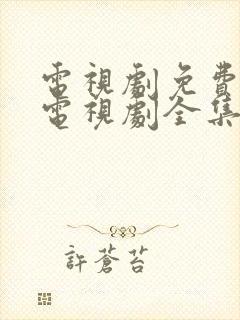 電視劇免費
電視劇全集
許蒼苔